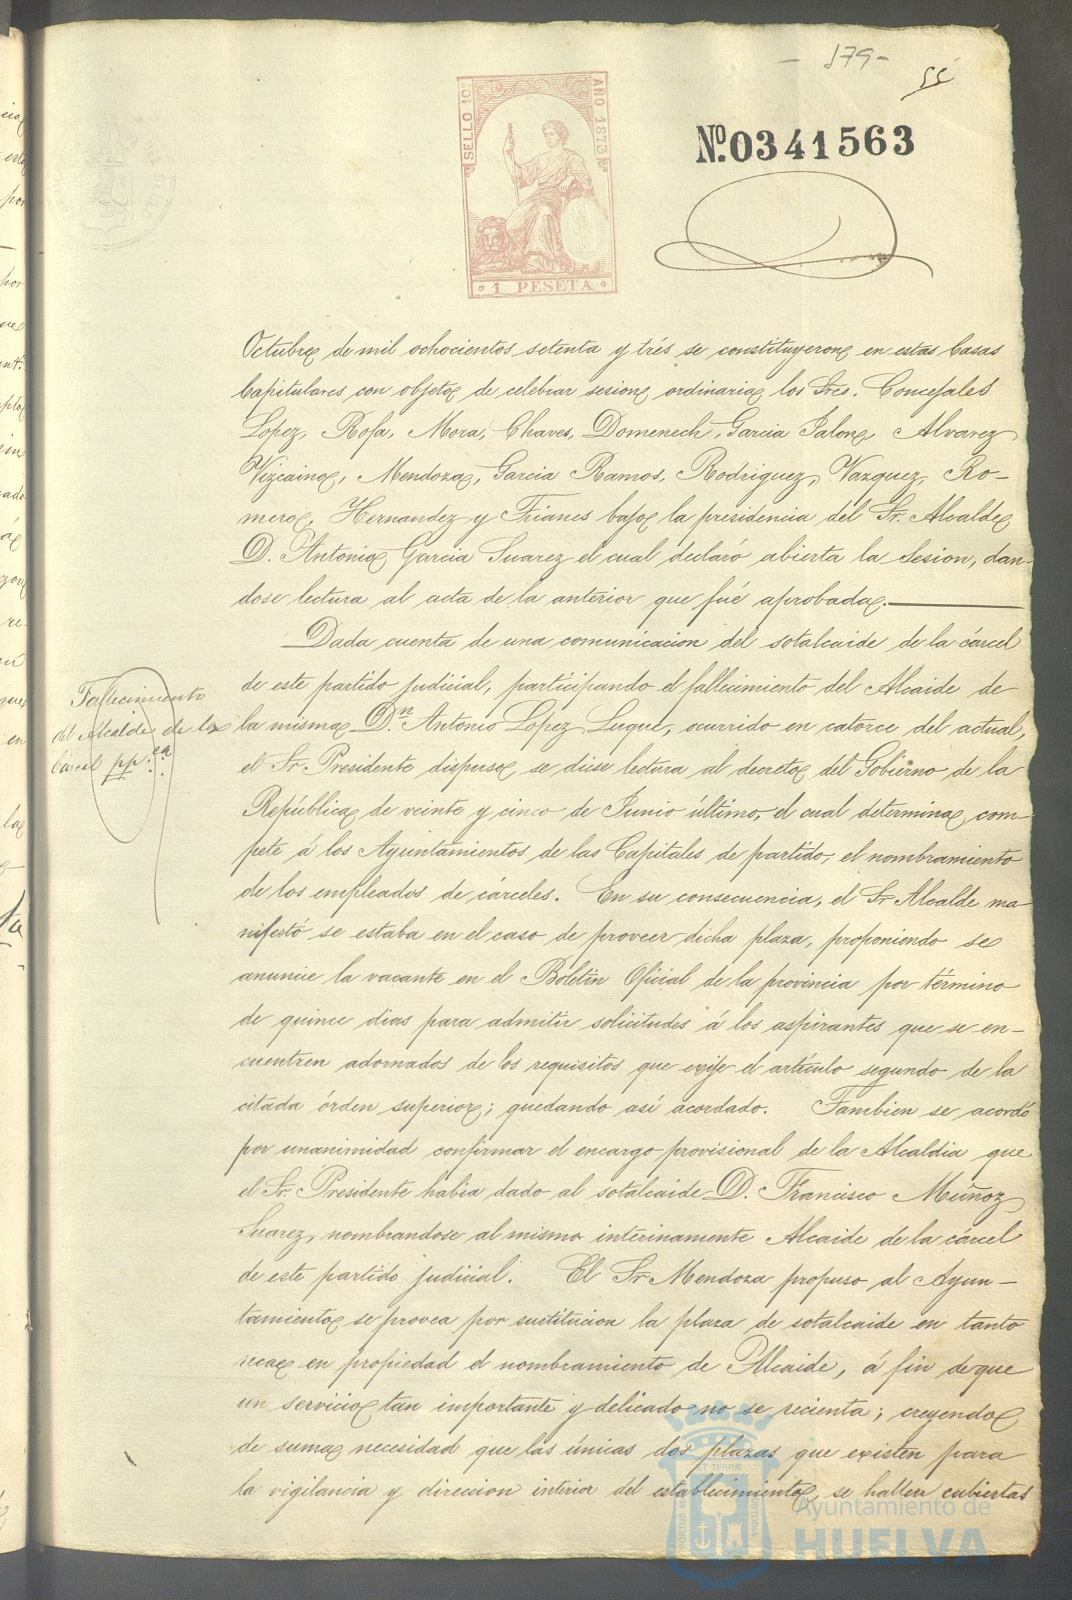 - 179 -
55
SELLO 10º
AÑO 1873
1 PESETA
Nº. 0341563
Octubre de mil ochocientos setenta y trés se constituyeron en estas Casas
Capitulares con objeto de celebrar sesion ordinaria los Sres. Concejales
Lopez, Rosa, Mora, Chaves, Domenech, Garcia Jalon, Alvarez
Vizcaino, Mendoza, Garcia Ramos, Rodriguez, Vazquez, Ro-
mero, Hernandez y Trianes bajo la presidencia del Sr. Alcalde
D. Antonio Garcia Suarez el cual declaró abierta la Sesion, dan-
dose lectura al acta de la anterior que fué aprobada.
Dada cuenta de una comunicacion del sotalcaide de la cárcel
de este partido judicial, participando el fallecimiento del Alcaide de
la misma Dn. Antonio López Luque, ocurrido en catorce del actual,
el Sr. Presidente dispuso se diese lectura al decreto del Gobierno de la
República de veinte y cinco de Junio último, el cual determina com-
pete á los Ayuntamientos de las Capitales de partido, el nombramiento
de los empleados de cárceles. En su consecuencia, el Sr Alcalde ma
nifestó se estaba en el caso de proveer dicha plaza, proponiendo se
anuncie la vacante en el Boletin Oficial de la provincia por término
de quince dias para admitir solicitudes á los aspirantes que se en-
cuentren adornados de los requisitos que exije el artículo segundo de la
citada órden superior; quedando asi acordado. Tambien se acordó
por unanimidad confirmar el encargo provisional de la Alcaldia que
el Sr. Presidente habia dado al sotalcaide D. Francisco Muñoz
Suarez, nombrandose al mismo interinamente Alcaide de la cárcel
de este partido judicial. El Sr Mendoza propuso al Ayun-
tamiento se provea por sustitucion la plaza de sotalcaide en tanto
recae en propiedad el nombramiento de Alcaide, á fin de que
un servicio tan importante y delicado no se recienta; creyendo
de suma necesidad que las únicas dos plazas que existen para
la vigilancia y direccion interior del establecimiento, se hallen cubiertas
Fallecimiento
del Alcalde de la
Cárcel pp.ca
Ayuntamiento de
HUELVA